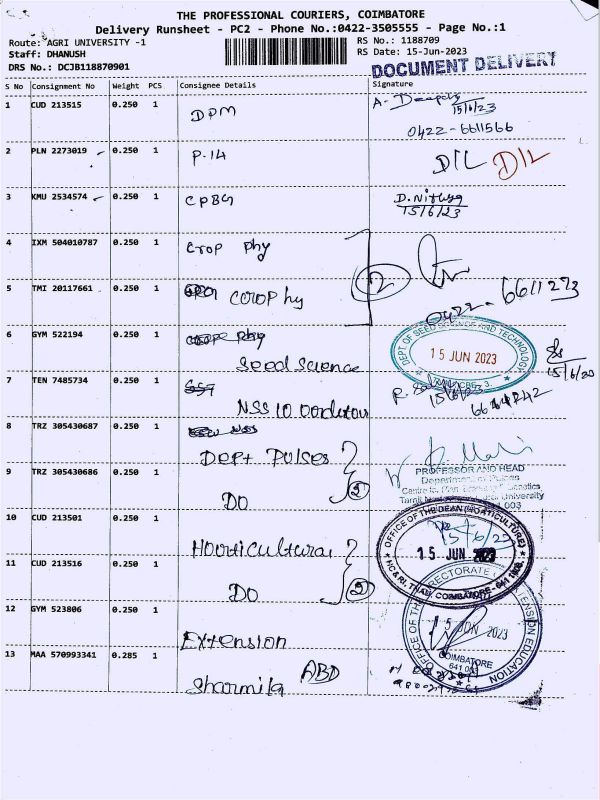 THE PROFESSIONAL COURIERS, COIMBATORE
Delivery Runsheet - PC2 - Phone No.:0422-3505555 - Page No.:1
Route: AGRI UNIVERSITY -1
Staff: DHANUSH
DRS No.: DCJB118870901
RS No.: 1188709
RS Date: 15-Jun-2023
DOCUMENT DELIVERY
S No Consignment No Weight PCS Consignee Details Signature
1 CUD 213515 0.250 1 DPM
15/6/23
0422-6611566
2 PLN 2273019 0.250 1 P-14 D/L D/L
3 KMU 2534574 0.250 1 CPBG D. Nithya
15/6/23
4 IXM 504010787 0.250 1 Crop Phy
2
5 TMI 20117661 0.250 1 Crop Hy
0422-6611273
6 GYM 522194 0.250 1 Seed Science
DEPT OF SEED SCIENCE AND TECHNOLOGY
15 JUN 2023
15/6/20
7 TEN 7485734 0.250 1 NSS
15/6/23
8 TRZ 305430687 0.250 1 Dept Pulses
PROFESSOR AND HEAD
Department of Pulses
Genetics
University
003
9 TRZ 305430686 0.250 1 DO
2
10 CUD 213501 0.250 1 Horticultural
OFFICE OF THE DEAN (HORTICULTURE)
15/6/23
15 JUN 2023
HC & RI, TNAU, COIMBATORE - 641 003.
11 CUD 213516 0.250 1 DO
2
12 GYM 523806 0.250 1 Extension
OFFICE OF THE DIRECTORATE OF EXTENSION EDUCATION
15 JUN 2023
COIMBATORE
641 003
13 MAA 570993341 0.285 1 Sharmila ABD